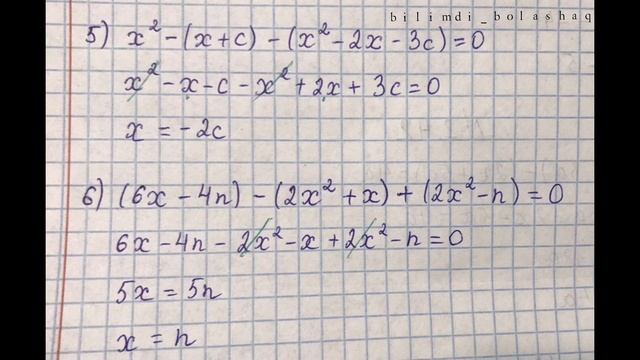 bilimdi_bolashaq
5) x² - (x + c) - (x² - 2x - 3c) = 0
x² - x - c - x² + 2x + 3c = 0
x = - 2c
6) (6x - 4n) - (2x² + x) + (2x² - n) = 0
6x - 4n - 2x² - x + 2x² - n = 0
5x = 5n
x = n